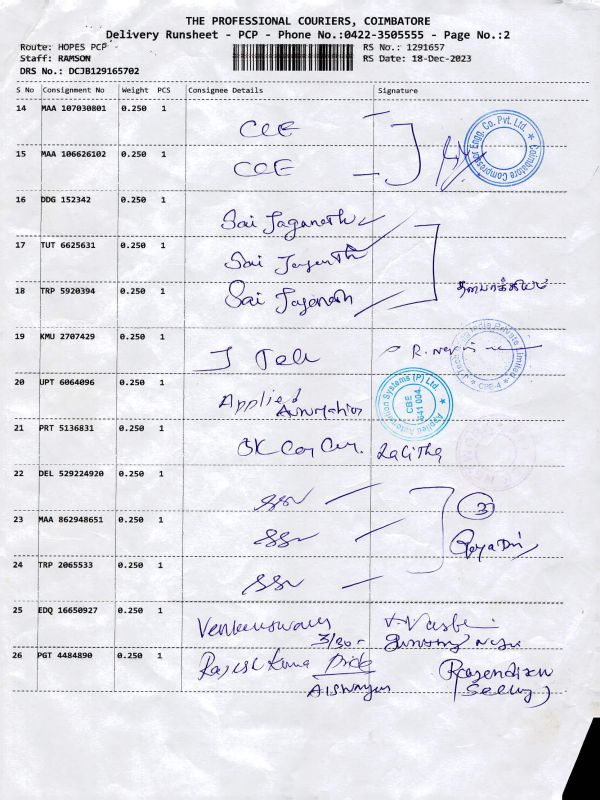 THE PROFESSIONAL COURIERS, COIMBATORE
Delivery Runsheet - PCP - Phone No.:0422-3505555 - Page No.:2
Route: HOPES PCP
RS No.: 1291657
Staff: RAMSON
RS Date: 18-Dec-2023
DRS No.: DCJB129165702
S No Consignment No Weight PCS Consignee Details Signature
14 MAA 107030801 0.250 1 CCE
Coimbatore Compressor Engg. Co. Pvt. Ltd.
15 MAA 106626102 0.250 1 CCE
16 DDG 152342 0.250 1 Sai Jaganath
17 TUT 6625631 0.250 1 Sai Jaganath
18 TRP 5920394 0.250 1 Sai Jaganath
19 KMU 2707429 0.250 1 J Tele
India Private Limited
CBE-4
20 UPT 6064096 0.250 1 Applied Automation
Applied Automation Systems (P) Ltd.
CBE
641 004.
21 PRT 5136831 0.250 1 OK Car Car. Lalitha
22 DEL 529224920 0.250 1 SSV
3
23 MAA 862948651 0.250 1 SSV
24 TRP 2065533 0.250 1 SSV
25 EDQ 16650927 0.250 1
26 PGT 4484890 0.250 1 Rajesh Kumar Pride
Rajendiran